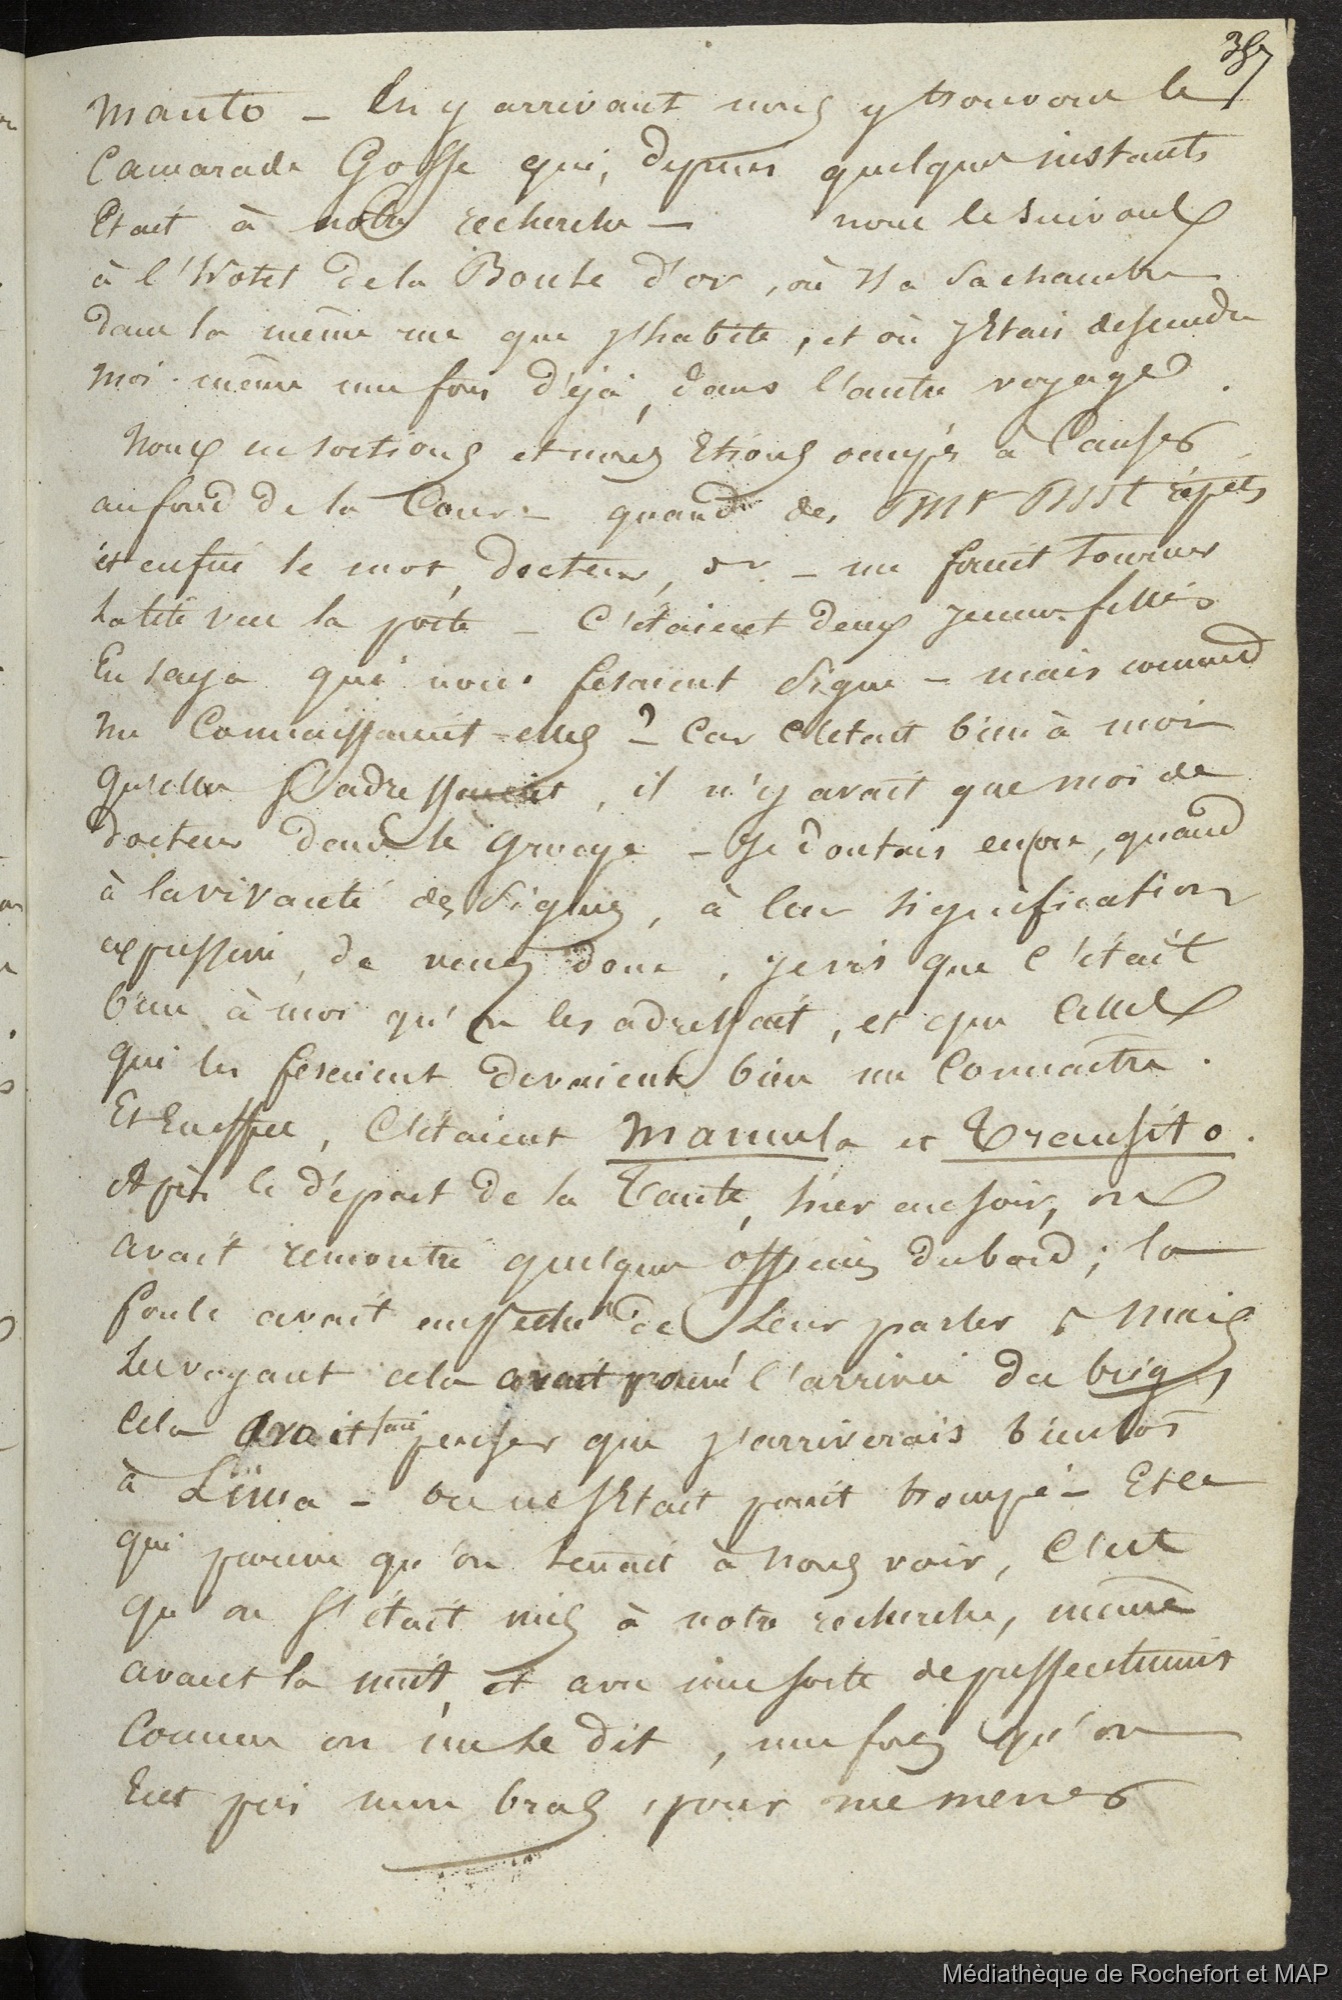 387
manto – En y arrivant nous y trouvons le
Camarade Gosse qui, depuis quelques instants
Etait à notre recherche – nous le suivons
à l'hotel de la Boule d'or, où il a sa chambre
dans la même rue que j'habite, et où j'Etais descendu
moi-même une fois déjà, dans l'autre voyage.
Nous en sortions et nous Etions occupés à Causer
au fond de la Cour – quand des Psst répétés
et enfin le mot, docteur, – me firent tourner
la tête vers la porte – C'étaient deux jeunes filles
En saya qui nous fesaient signe – mais comment
me Connaissaient-elles ? – Car C'était bien à moi
qu'elles s'adressaient, il n'y avait que moi de
docteur dans le groupe – Je doutais encore, quand
à la vivacité des signes, à leur signification
expressive, de venez donc, je vis que c'était
bien à moi qu'on les adressait, et que Celles
qui les fesaient devaient bien me Connaître.
Et En effet, C'étaient Manuela et Transito.
Après le départ de la Tante, hier au soir, on
avait rencontré quelques officiers du bord ; la
foule avait empêché de Leur parler, Mais
les voyant cela avait prouvé l'arrivée du brig,
Cela avait fait penser que j'arriverais bientôt
à Lima – on ne s'Etait point trompé – Et ce
qui prouve qu'on tenait à nous voir, C'est
qu'on s'était mis à notre recherche, même
avant la nuit, et avec une sorte de pressentiment
Comme on me le dit, une fois qu'on
Eut pris mon bras, pour me mener
Médiathèque de Rochefort et MAP